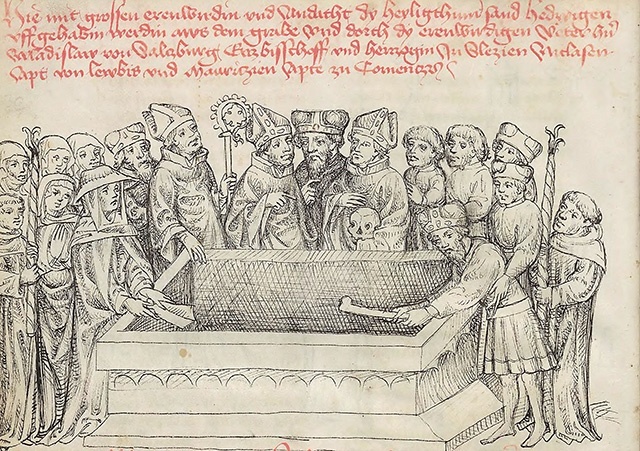 Hie mit grossen erenwirdin vnd Andacht dy heyligthum sand hedwigen
vff gehabin werdin aws dem grabe vnd dorch dy erenwirdigen Veter hn
Wladislaw von Salzburg Ertzbisschoff vnd herzogin Jn Slezien Niclasen
Apt von lewbis vnd Mauritzien Apte zu Comentz